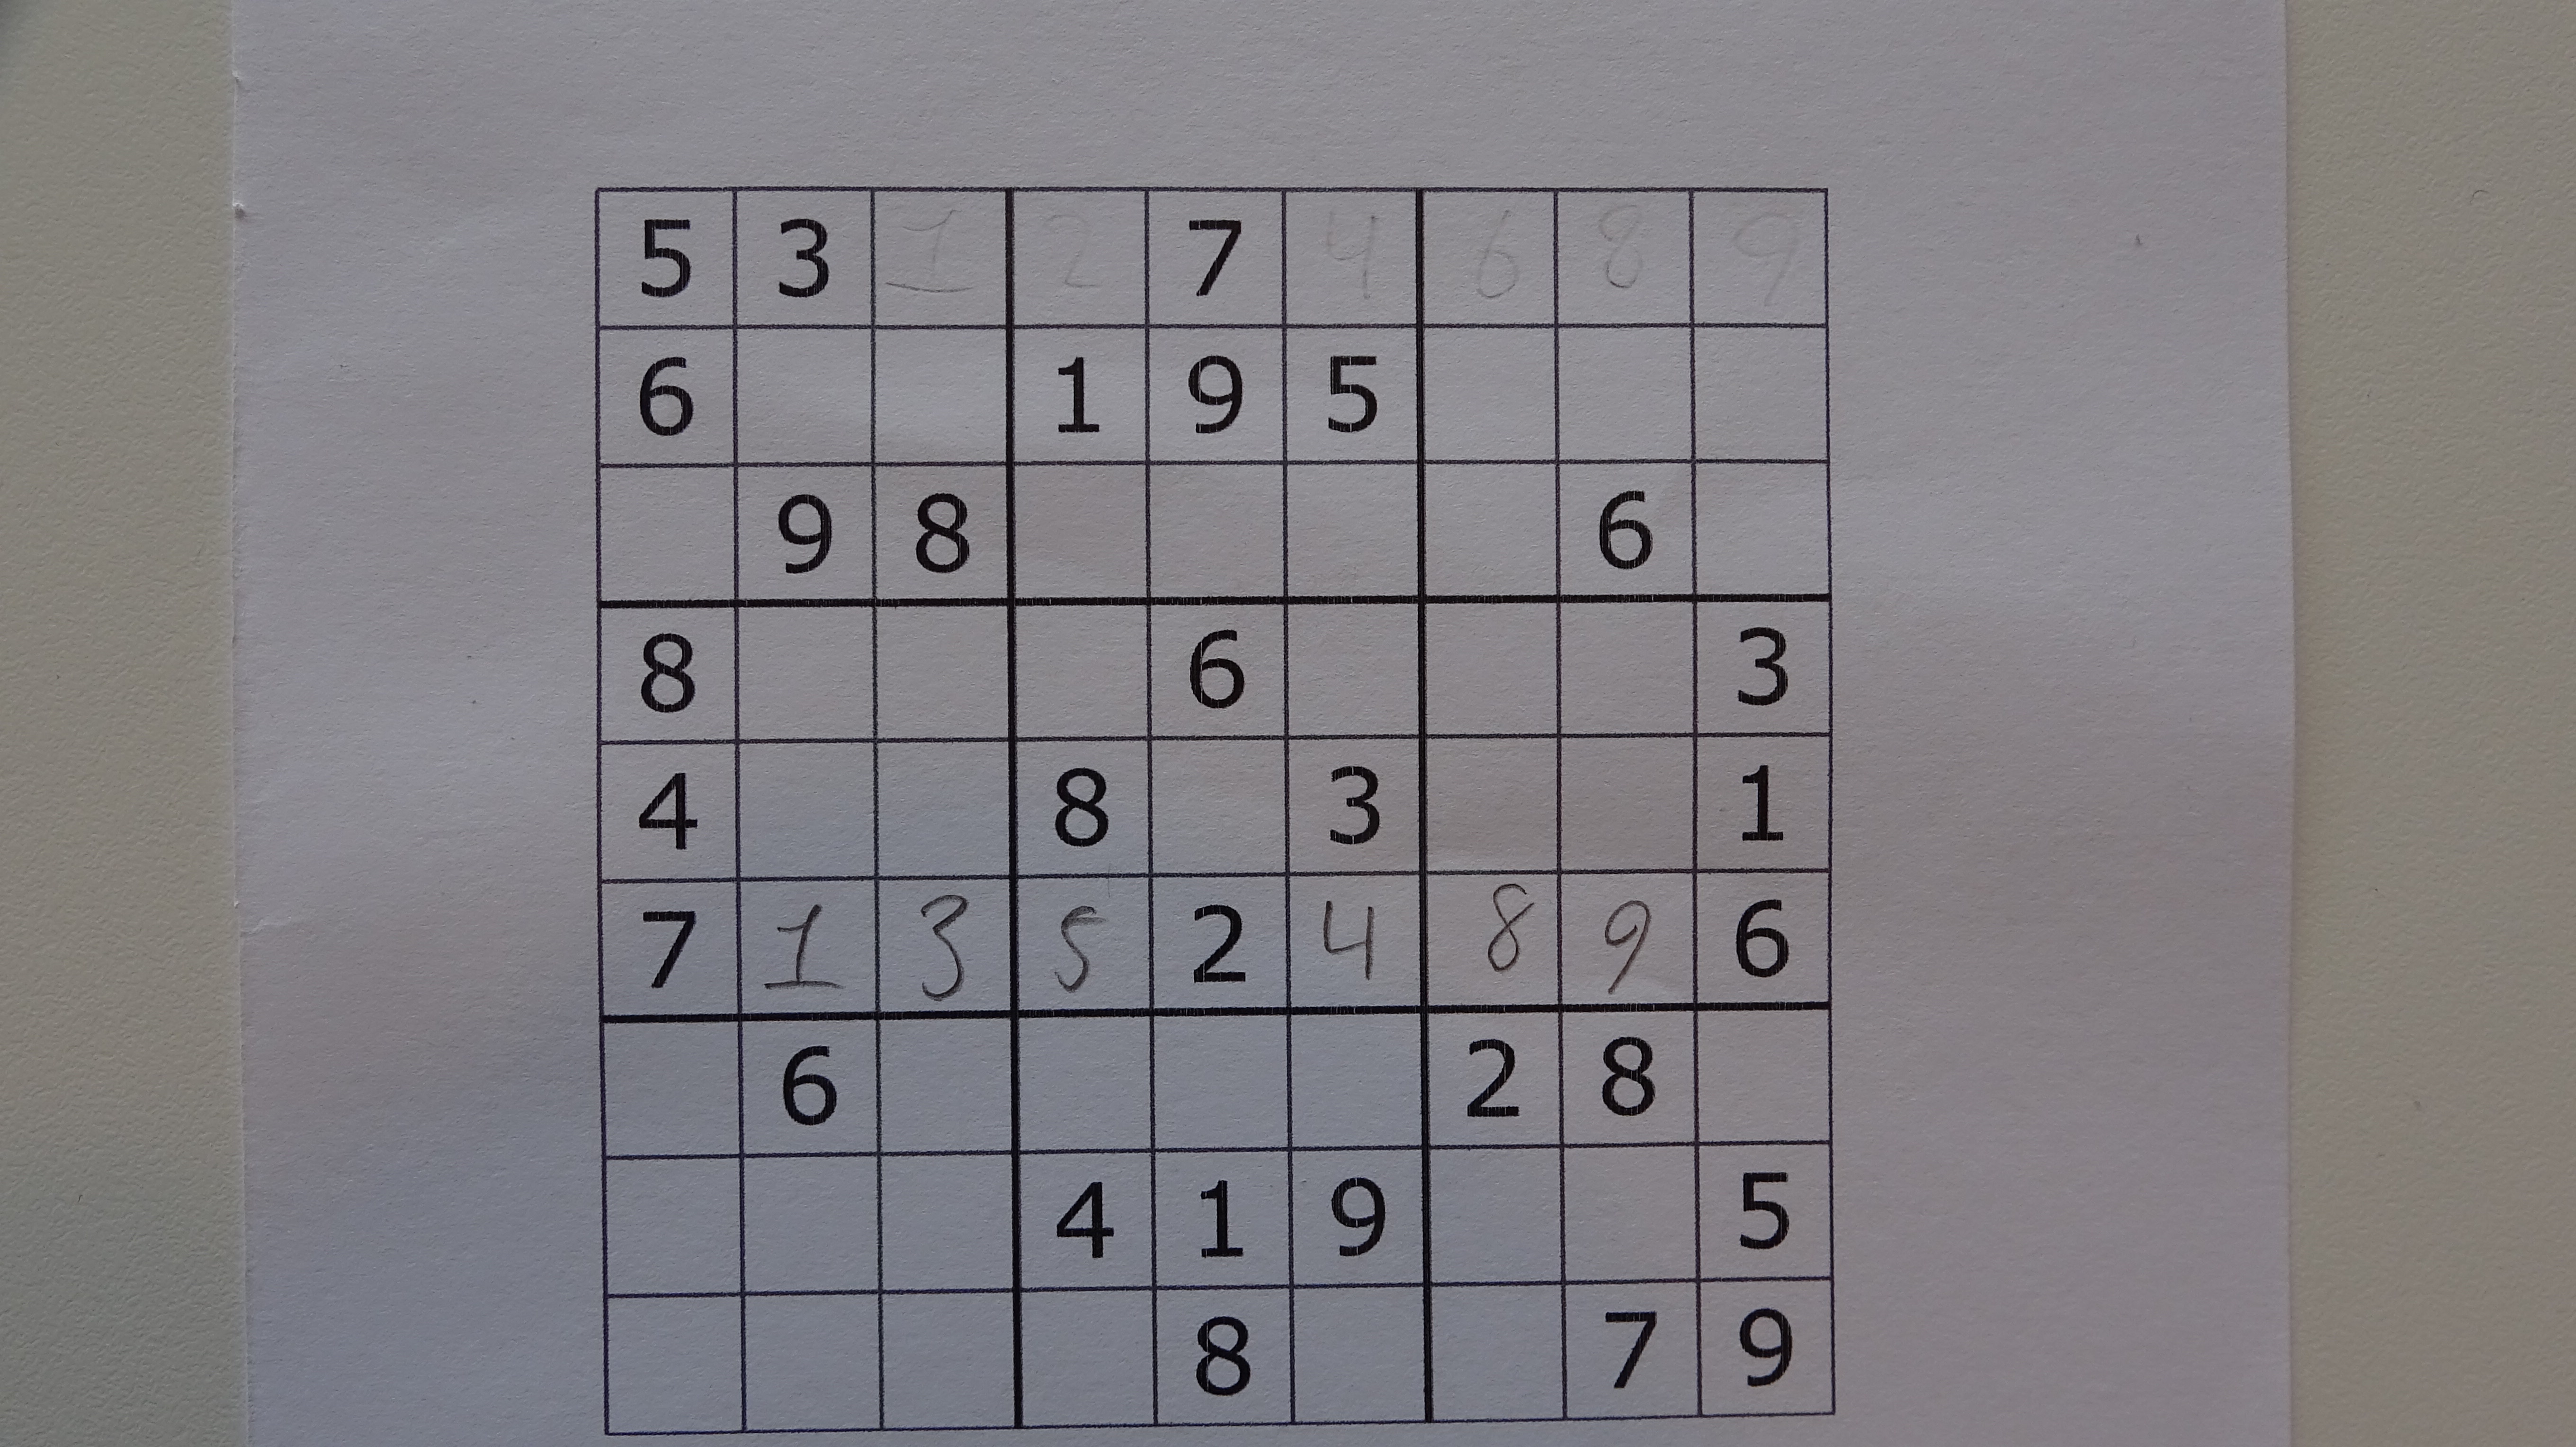 5 3 1 2 7 4 6 8 9
6 1 9 5
9 8 6
8 6 3
4 8 3 1
7 1 3 5 2 4 8 9 6
6 2 8
4 1 9 5
8 7 9